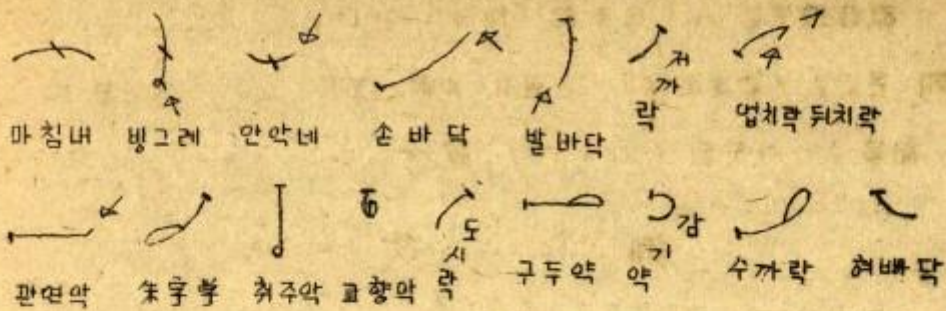 마침내 빙그레 안악네 손바닥 발바닥 저까락 업치락뒤치락
관현악 朱字學 취주악 교향악 도시락 구두약 감기약 수까락 혀빠닥